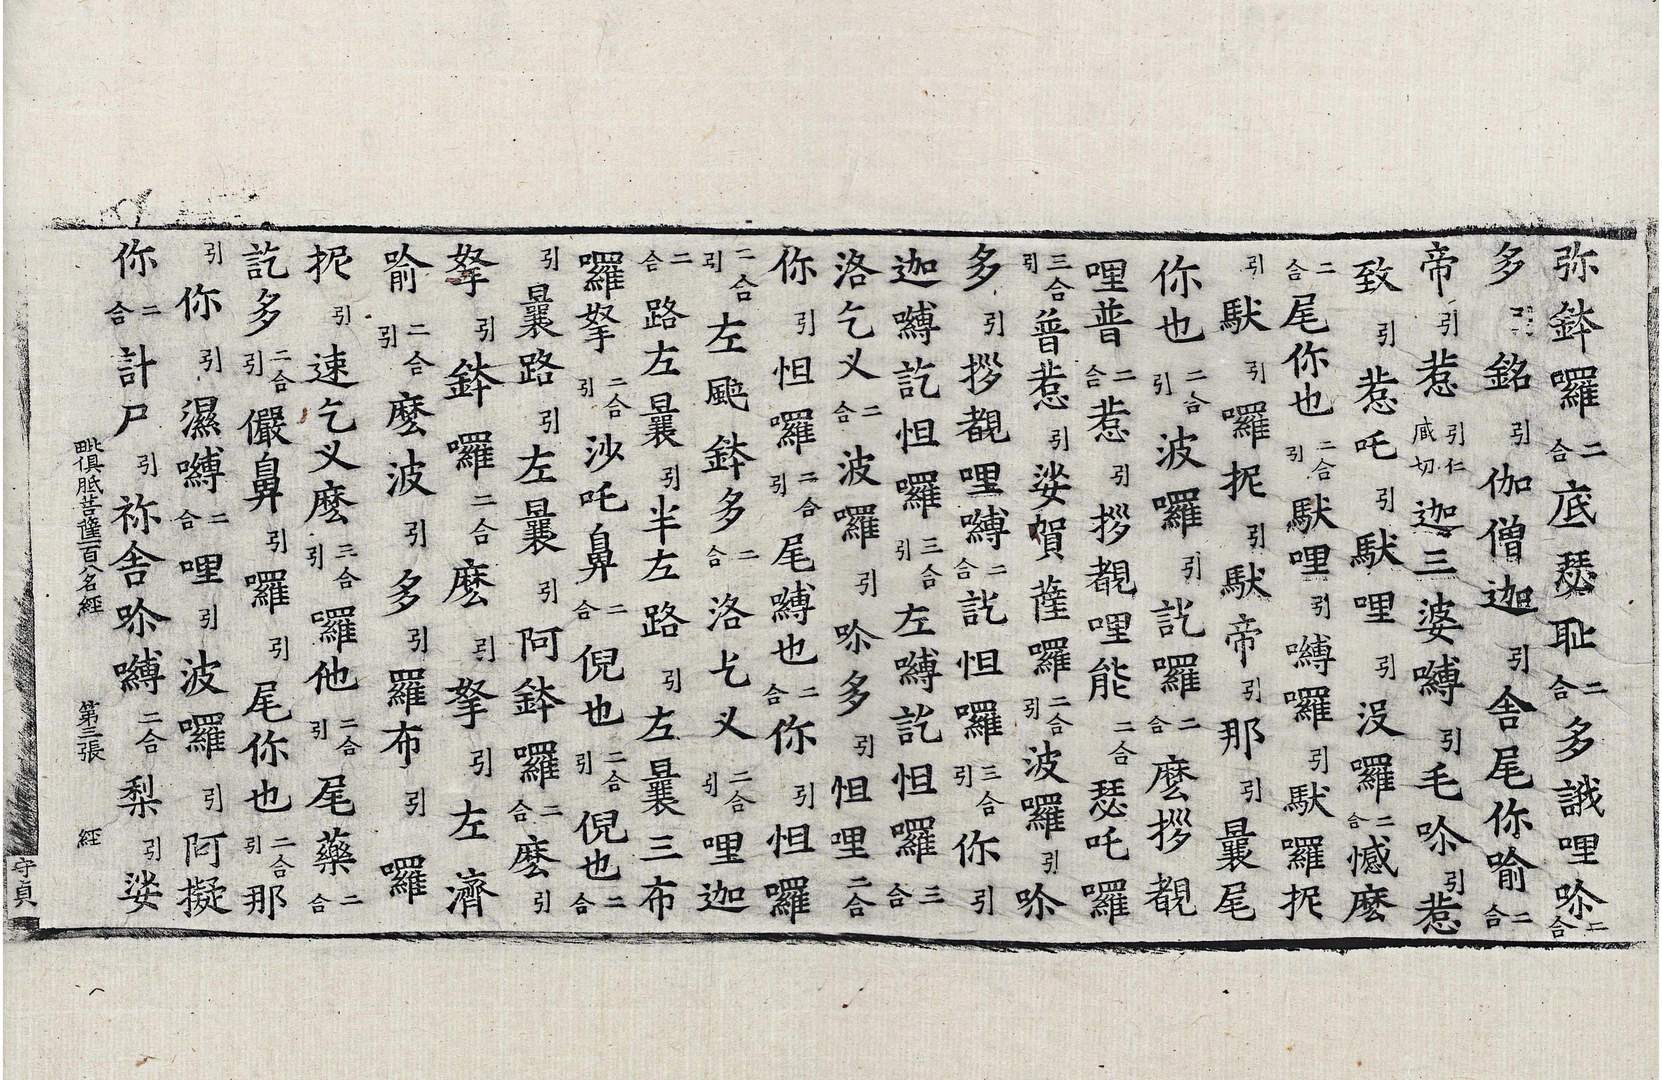 弥鉢囉二合底瑟耻二合多誐哩吩二合
多引銘引伽僧迦引舍尾你喻二合
帝引惹引仁咸切迦三婆嚩引毛吩引惹
致引惹吒引䭾哩引沒囉二合憾麽
二合引尾你也二合引䭾哩引嚩囉引䭾囉抳
引䭾引囉抳引䭾帝引那引曩尾
你也二合引波囉引訖囉二合麽拶覩
哩普二合惹引拶覩哩能二合瑟吒囉
三合引普惹引娑賀薩囉二合引波囉引吩
多引拶覩哩嚩二合訖怛囉三合引你引
迦嚩訖怛囉三合引左嚩訖怛囉三合
洛乞义二合波囉引吩多引怛哩二合
你引怛囉二合引尾嚩也二合你引怛囉
二合引左颰鉢多二合洛乞义二合引哩迦
二合路左曩引半左路引左曩三布
囉拏二合引沙吒鼻二合倪也二合引倪也二合
引曩路引左曩引阿鉢囉二合麽引
拏引鉢囉二合麽引拏引左濟
喻二合引麽波引多引羅布引囉
抳引速乞义麽三合引囉他二合引尾藥二合
訖多二合引儼鼻引囉引尾你也二合引那
引你引濕嚩二合哩引波囉引阿擬
你二合計尸引祢舍吩嚩二合梨引娑
毗俱胝菩薩一百八名經 第三張 經
守貞